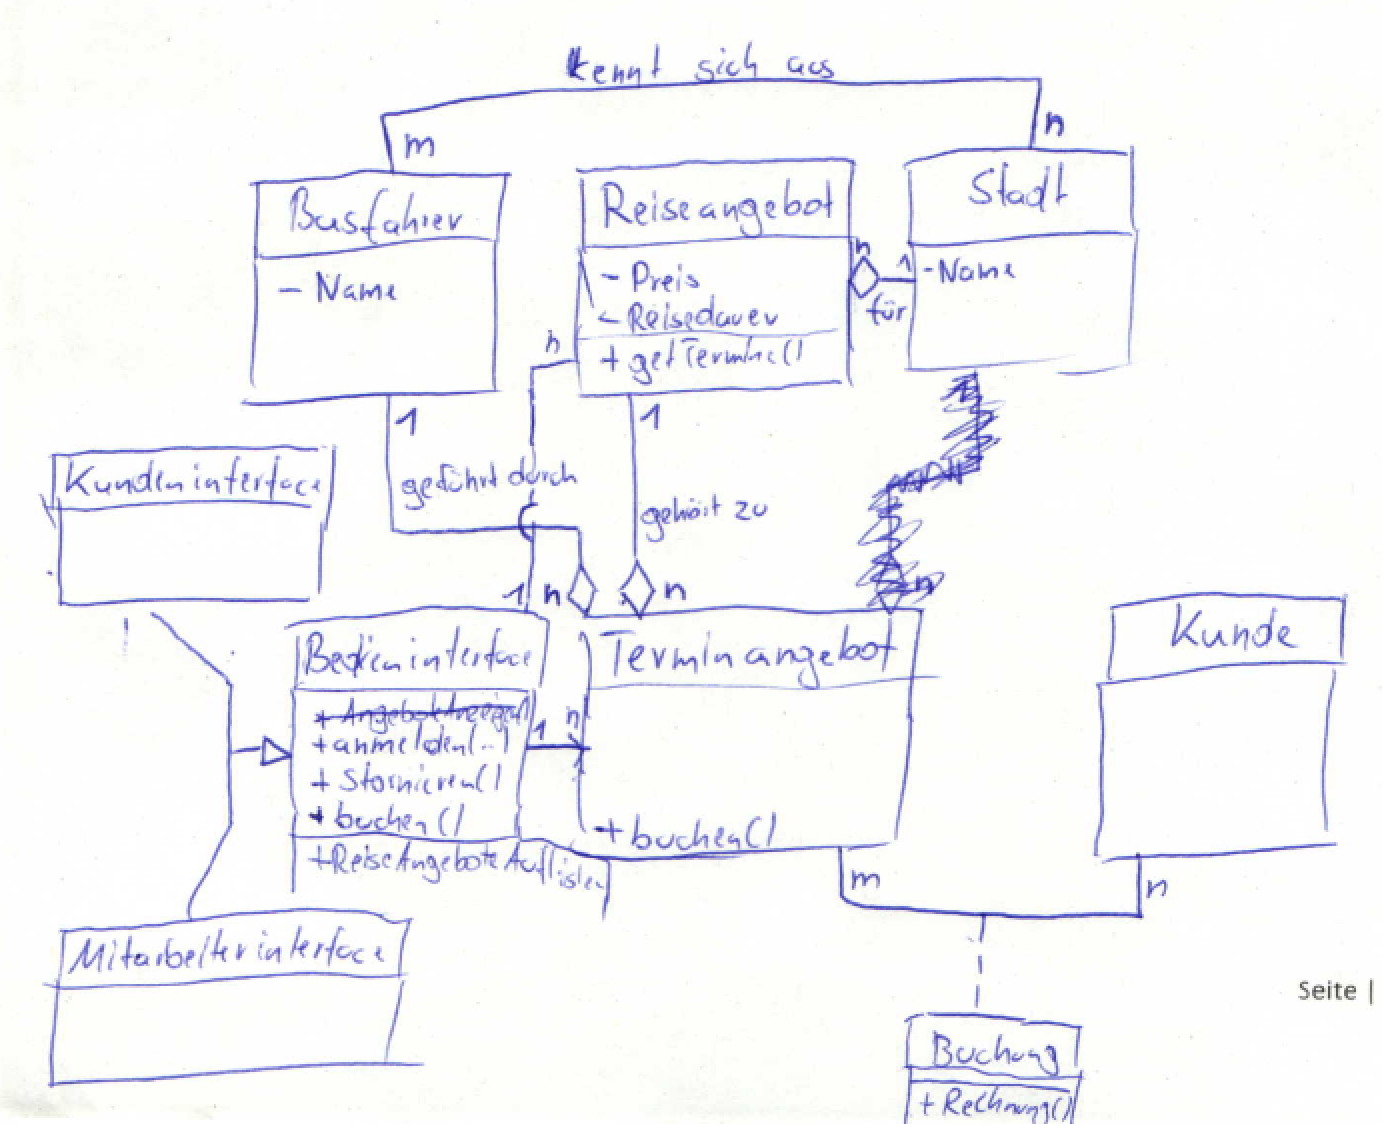 kennt sich aus
m
n
Busfahrer
- Name
Reiseangebot
- Preis
- Reisedauer
+ getTermine()
Stadt
- Name
n
1
für
n
1
1
geführt durch
gehört zu
Kundeninterface
1
n
n
n
Bedieninterface
+ AngebotAnzeigen()
+ anmelden(..)
+ Stornieren()
+ buchen()
+ReiseAngeboteAuflisten
1
n
Terminangebot
+ buchen()
Kunde
m
n
Mitarbeiterinterface
Seite |
Buchung
+ Rechnung()